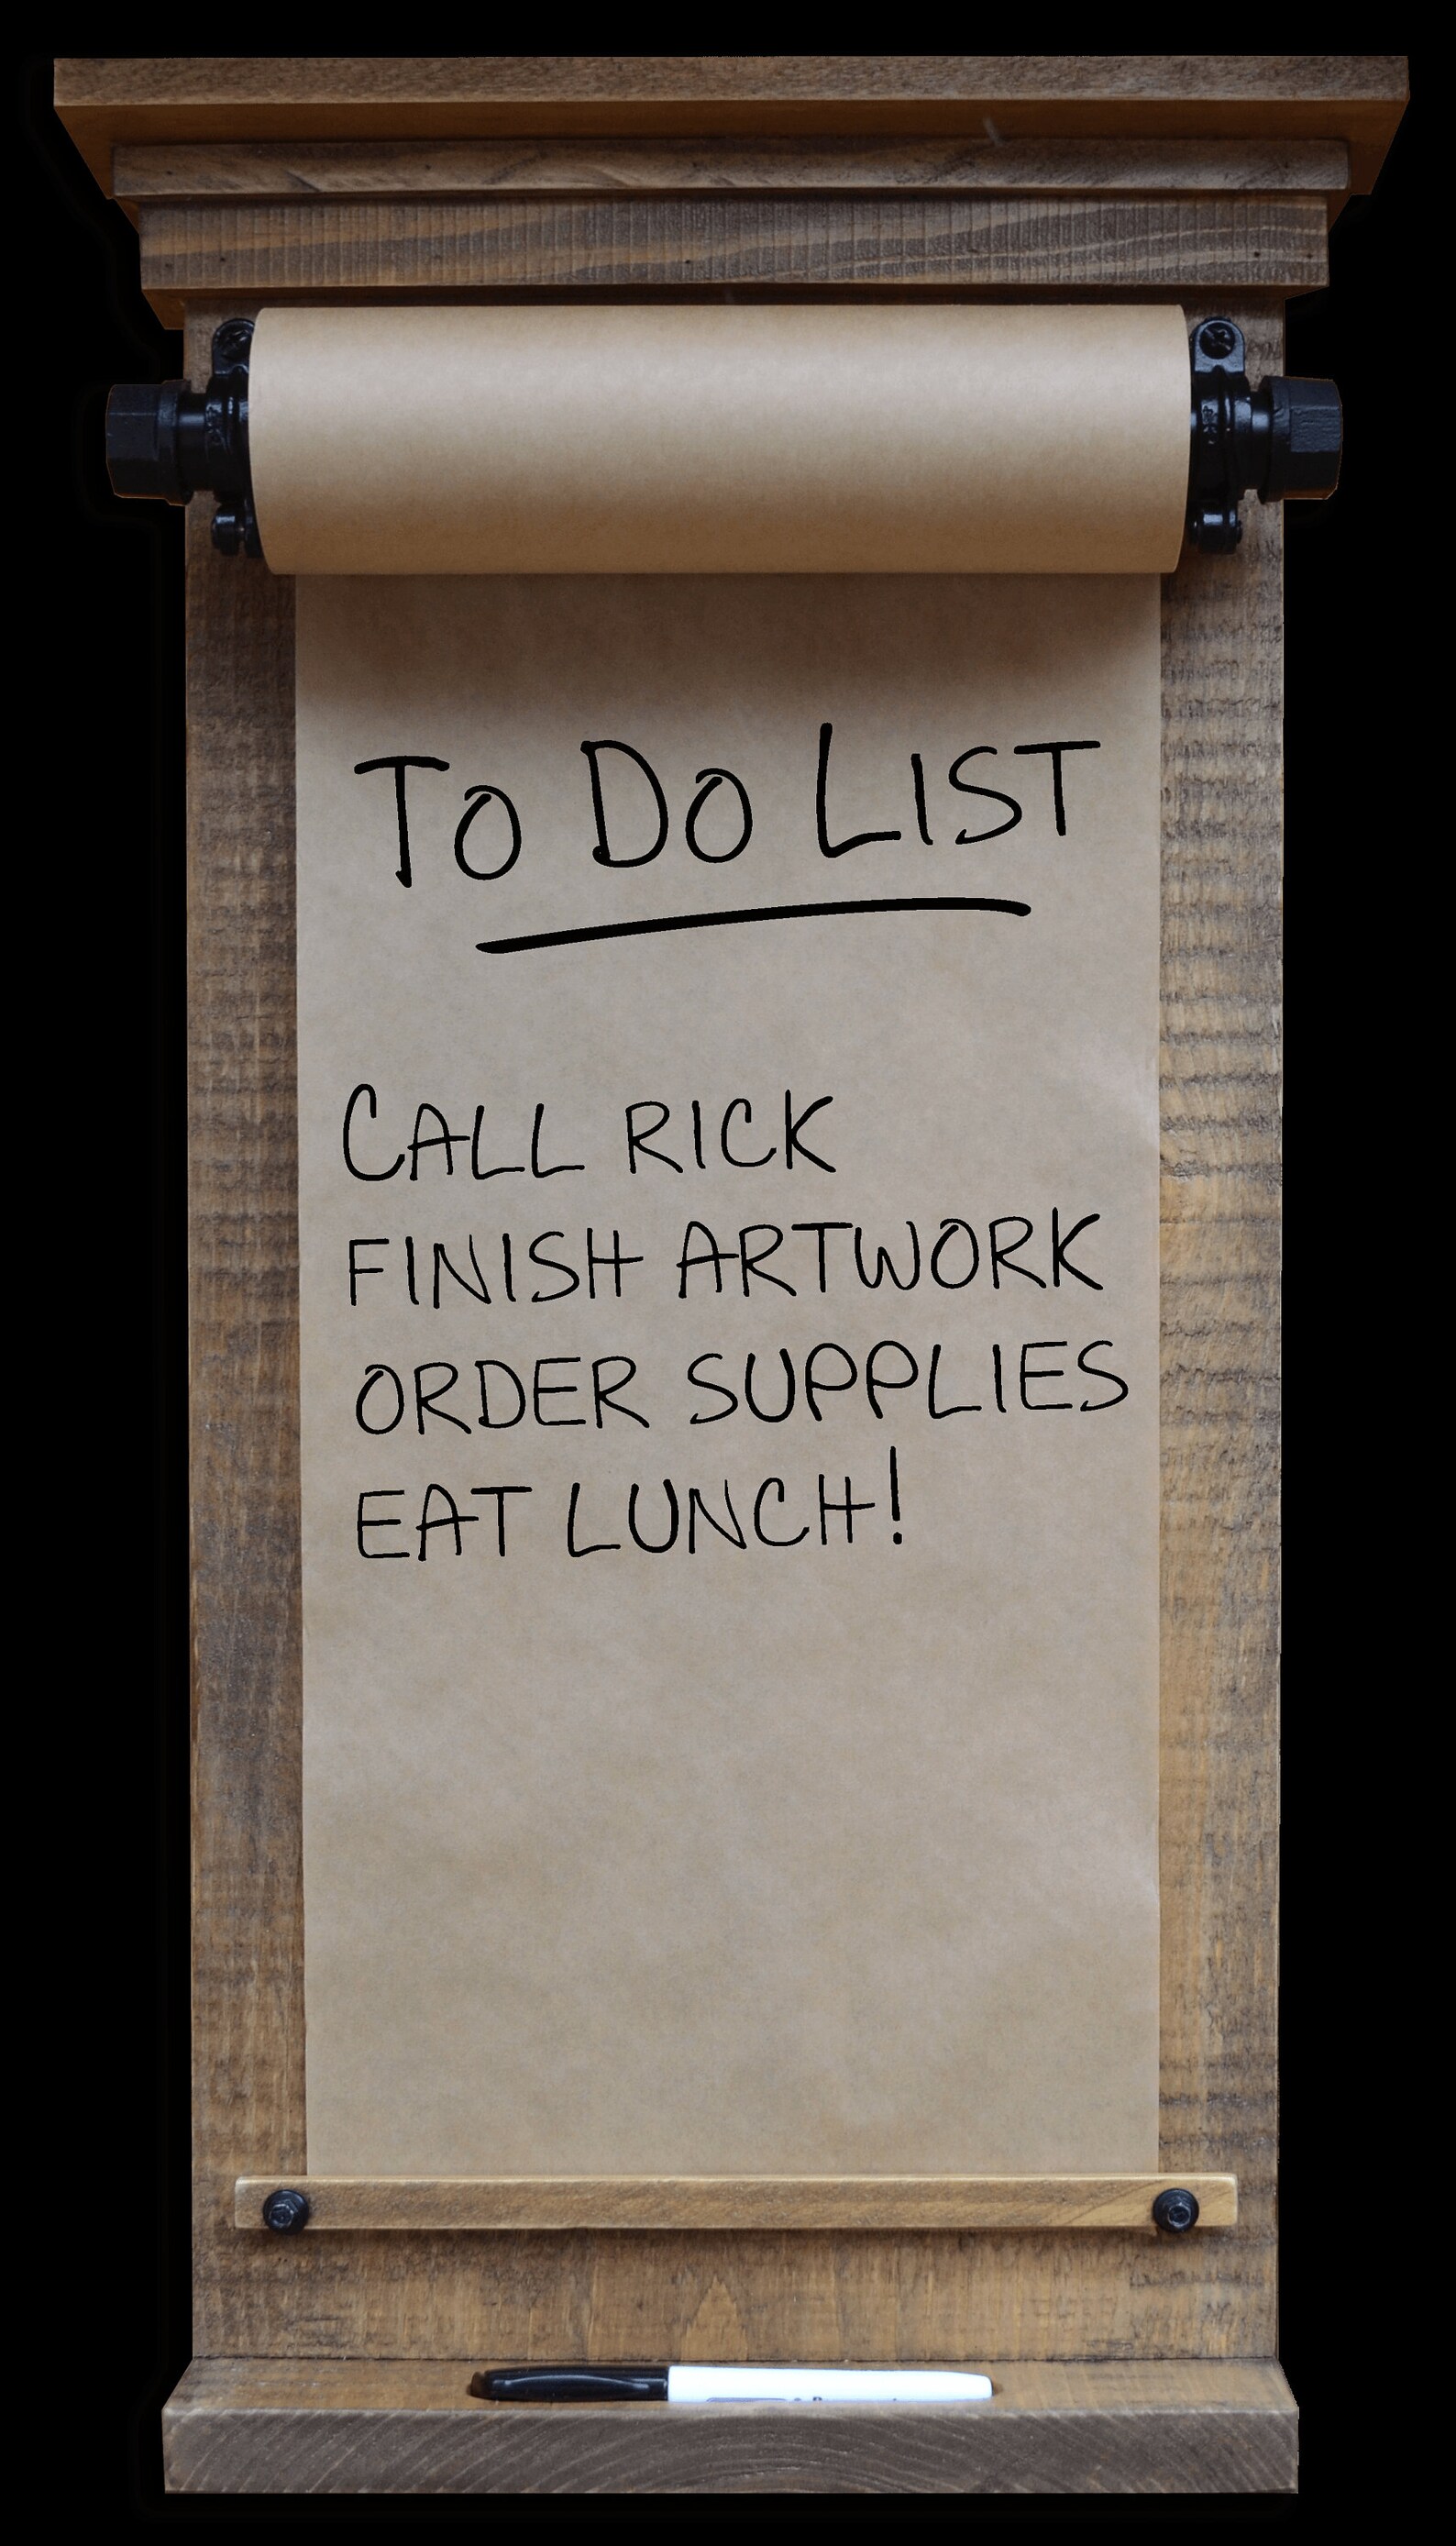 To Do List
CALL RICK
FINISH ARTWORK
ORDER SUPPLIES
EAT LUNCH!